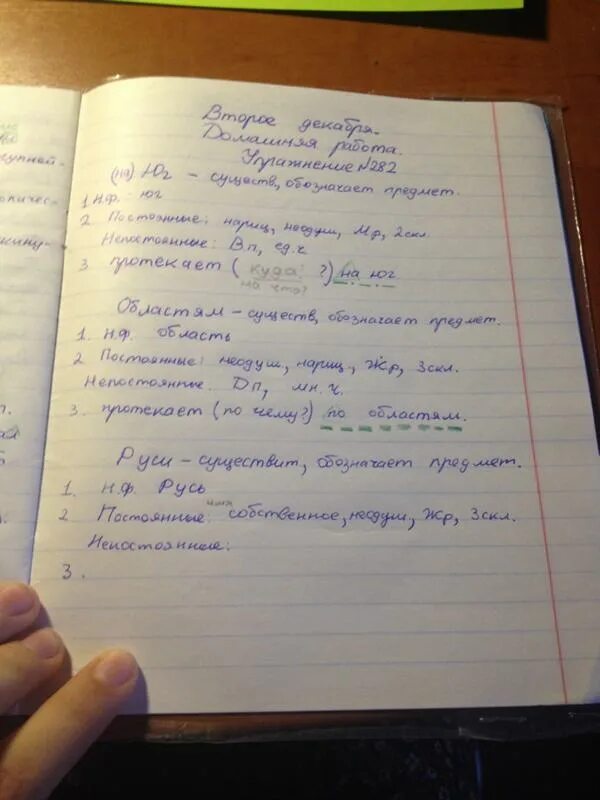 Второе декабря.
Домашняя работа.
Упражнение №282
(на) Юг – существ, обозначает предмет.
1 Н.ф.: юг
2 Постоянные: нариц, неодуш, Мр, 2скл.
Непостоянные: Вп, ед.ч
3 протекает (куда? ?) на юг
на что?
Областям – существ, обозначает предмет.
1. Н.ф. область
2 Постоянные: неодуш, нариц, Жр, 3скл.
Непостоянные: Дп, мн.ч.
3. протекает (по чему?) по областям.
Руси – существит, обозначает предмет.
1. Н.ф. Русь
имя
2 Постоянные: собственное, неодуш, Жр, 3скл.
Непостоянные:
3.